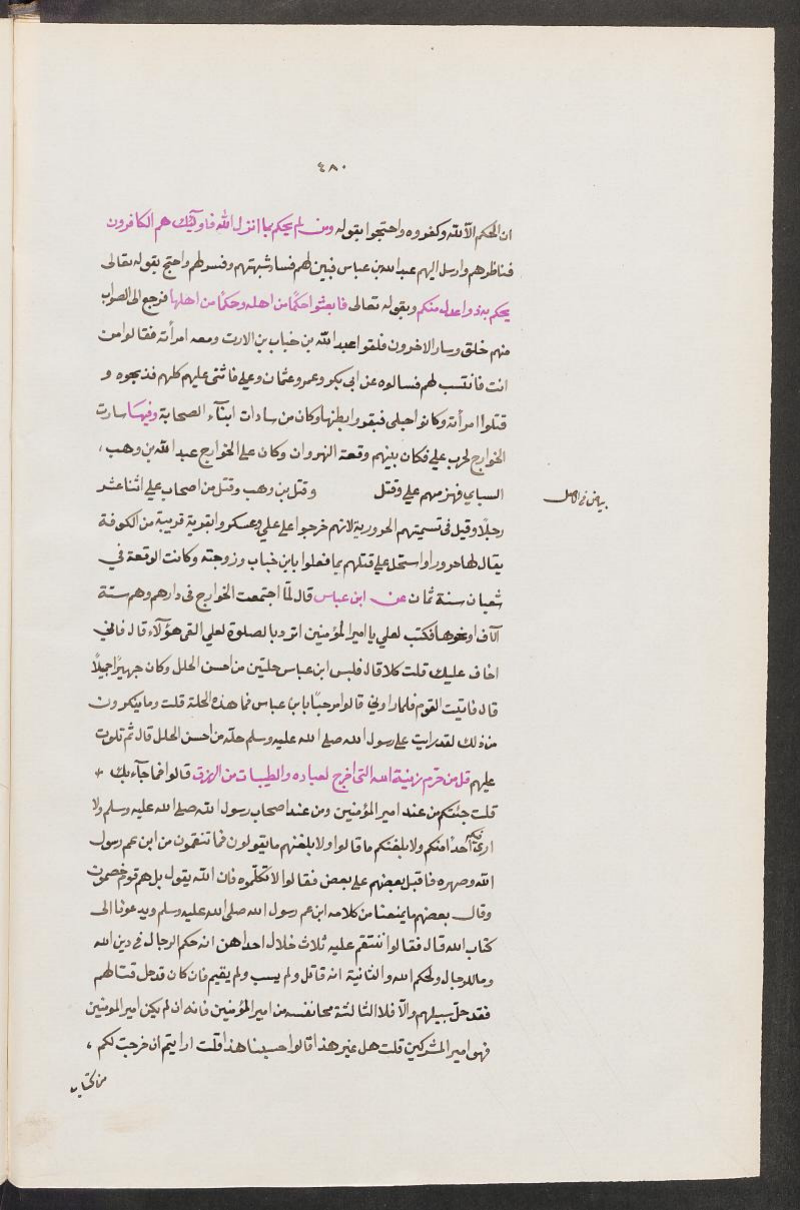 ٤٨٠
ان الحكم الا لله وكفروه واحتجوا بقوله ومن لم يحكم بما انزل الله فاوليك هم الكافرون
فناظرهم وارسل اليهم عبد الله بن عباس فبين لهم فساد شبهتهم وفسر لهم واحتج بقوله تعالى
يحكم به ذوا عدل منكم وبقوله تعالى فابعثوا حكمًا من اهله وحكمًا من اهلها فرجع الى الصواب
منهم خلق وسار الاخرون فلقوا عبد الله بن خباب بن الارت ومعه امرأته فقالوا من
انت فانتسب لهم فسالوه عن ابي بكر وعمر وعثمان وعلي فاثنى عليهم كلهم فذبحوه و
قتلوا امرأته وكانوا حبلى فبقروا بطنها وكان من سادات ابنآء الصحابة وفيها سارت
الخوارج لحرب علي فكان بينهم وقعة النهروان وكان على الخوارج عبد الله بن وهب ،
السباي فهزمهم علي وقتل وقتل بن وهب وقتل من اصحاب علي اثنا عشر
بياض في الاصل
رجلًا وقيل في تسميتهم الحرورية لانهم خرجوا على علي وعسكروا بقوية قريبة من الكوفة
يقال لها حرورا واستحل علي قتلهم بما فعلوا بابن خباب وزوجته وكانت الوقعة في
شعبان سنة ثمان عن ابن عباس قال لمّا اجتمعت الخوارج في دارهم وهم ستة
آلاف او نحوها فكتب لعلي يا امير المؤمنين اترد بالصلوة لعلي القى هؤلآء قال فاني
اخاف عليك قلت كلا قال فلبس ابن عباس حلتين من احسن الحلل وكان جهيرًا جميلًا
قال فاتيت القوم فلما راوني قالوا مرحبًا بابن عباس فما هذه الحلة قلت وما ينكرون
من ذلك لقد رايت على رسول الله صلى الله عليه وسلم حلّة من احسن الحلل قال ثم تلوت
عليهم قل من حرم زينة الله التي اخرج لعباده والطيبات من الرزق قالوا فما جآء بك
قلت جئتكم من عند امير المؤمنين ومن عند اصحاب رسول الله صلى الله عليه وسلم ولا
ارى فيكم احدًا منكم ولا بلغنكم ما قالوا ولا بلغنهم ما يقولون فما تنقمون من ابن عم رسول
الله وصهره فاقبل بعضهم على بعض فقالوا لا تكلّموه فان الله يقول بل هم قوم خصمون
وقال بعضهم ما يمنعنا من كلامه ابن عم رسول الله صلى الله عليه وسلم ويدعونا الى
كتاب الله قال فقالوا ننتقم عليه ثلاث خلال احداهن انه حكم الرجال في دين الله
وما للرجال ولحكم الله والثانية انه قاتل ولم يسب ولم يغنم فان كان قد حل قتالهم
فقد حلّ سبيهم والّا فلا الثالثة محا نفسه من امير المؤمنين فانه ان لم يكن امير المومنين
فهو امير المشركين قلت هل غير هذا قالوا حسبنا هذا قلت ارايتم ان خرجت لكم ،
من كتاب